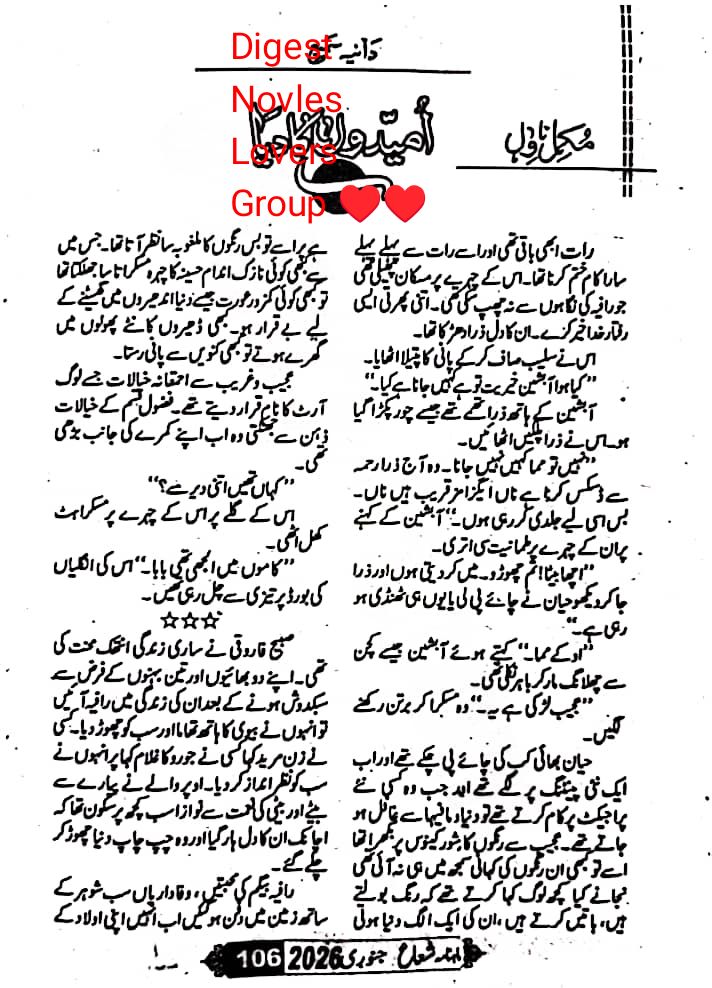 دانیہ
Digest
Novles
Lovers
Group ❤️❤️
اُمید و
مُکمل ناول
رات ابھی باقی تھی اور اسے رات سے پہلے پہلے
سارا کام ختم کرنا تھا۔ اس کے چہرے پر مسکان پھیلی تھی
جو رافیہ کی نگاہوں سے نہ چھپ سکی تھی۔ اتنی پھرتی ایسی
رفتار خدا خیر کرے۔ ان کا دل ذرا دھڑکا تھا۔
اس نے سلیب صاف کر کے پانی کا پتیلا اٹھایا۔
”کیا ہوا آبشین خیریت تو ہے کہیں جانا ہے کیا۔“
آبشین کے ہاتھ ذرا تھمے تھے جیسے چور پکڑا گیا
ہو۔ اس نے ذرا پلکیں اٹھائیں۔
”نہیں تو مما کہیں نہیں جانا۔ وہ آج ذرا رحمہ
سے ڈسکس کرنا ہے ناں ایگزامز قریب ہیں ناں۔
بس اسی لیے جلدی کر رہی ہوں۔“ آبشین کے کہنے
پر ان کے چہرے پر طمانیت سی اتری۔
”اچھا بیٹا! تم چھوڑو۔ میں کر دیتی ہوں اور ذرا
جا کر دیکھو حیان نے چائے پی لی یا یوں ہی ٹھنڈی ہو
رہی ہے۔“
”اوکے مما۔“ کہتے ہوئے آبشین جیسے کچن
سے چھلانگ مار کر باہر نکلی تھی۔
”عجیب لڑکی ہے یہ۔“ وہ مسکرا کر برتن رکھنے
لگیں۔
حیان بھائی کب کی چائے پی چکے تھے اور اب
ایک نئی پینٹنگ پر لگے تھے اور جب وہ کسی نئے
پراجیکٹ پر کام کرتے تھے تو دنیا و مافیہا سے غافل ہو
جاتے تھے۔ عجیب سے رنگوں کا شور کینوس پر بکھرا تھا
اسے تو کبھی ان رنگوں کی کہانی سمجھ میں ہی نہ آئی تھی
نجانے کیا کچھ لوگ کہا کرتے تھے کہ رنگ بولتے
ہیں، باتیں کرتے ہیں، ان کی ایک الگ دنیا ہوتی
ہے پر اسے تو بس رنگوں کا ملغوبہ سا نظر آتا تھا۔ جس میں
سے کبھی کوئی نازک اندام حسینہ کا چہرہ مسکراتا سا جھلکتا تھا
تو کبھی کوئی کمزور عورت جیسے دنیا اندھیروں میں گھسیٹنے کے
لیے بے قرار ہو۔ کبھی ڈھیروں کانٹے پھولوں میں
گھرے ہوتے تو کبھی کنویں سے پانی رستا۔
عجیب و غریب سے احمقانہ خیالات جسے لوگ
آرٹ کا نام قرار دیتے تھے۔ فضول قسم کے خیالات
ذہن سے جھٹکتی وہ اب اپنے کمرے کی جانب بڑھی
تھی۔
”کہاں تھیں اتنی دیر سے؟“
اس کے گلے پر اس کے چہرے پر مسکراہٹ
کھل اٹھی۔
”کاموں میں الجھی تھی بابا۔“ اس کی انگلیاں
کی بورڈ پر تیزی سے چل رہی تھیں۔
☆☆☆
صبیح فاروقی نے ساری زندگی انتھک محنت کی
تھی۔ اپنے دو بھائیوں اور تین بہنوں کے فرض سے
سبکدوش ہونے کے بعد ان کی زندگی میں رافیہ آئیں
تو انہوں نے بیوی کا ہاتھ تھاما اور سب کو چھوڑ دیا۔ کسی
نے زن مرید کہا کسی نے جورو کا غلام کہا پر انہوں نے
سب کو نظر انداز کر دیا۔ اوپر والے نے پیارے سے
بیٹے اور بیٹی کی نعمت سے نوازا سب کچھ پرسکون تھا کہ
اچانک ان کا دل ہار گیا اور وہ چپ چاپ دنیا چھوڑ کر
چلے گئے۔
رافیہ بیگم کی محبتیں، وفاداریاں سب شوہر کے
ساتھ زمین میں دفن ہو گئیں اب انہیں اپنی اولاد کے
ماہنامہ شعاع جنوری 2026 106